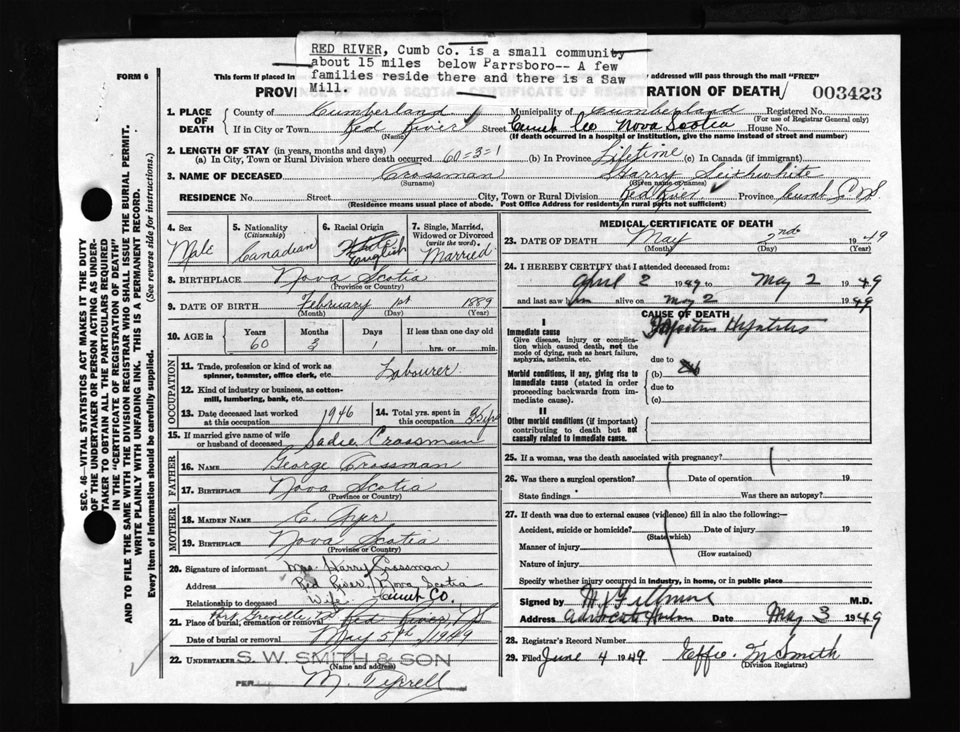 RED RIVER, Cumb Co. is a small community
about 15 miles below Parrsboro-- A few
families reside there and there is a Saw
Mill.
FORM 6
This form if placed in
addressed will pass through the mail "FREE"
PROVINCE OF NOVA SCOTIA CERTIFICATE OF REGISTRATION OF DEATH
003423
1. PLACE OF DEATH
County of Cumberland Municipality of Cumberland Registered No.
(For use of Registrar General only)
If in City or Town Red River Street Cumb Co Nova Scotia House No.
(Name) (If death occurred in a hospital or institution, give the name instead of street and number)
2. LENGTH OF STAY (in years, months and days)
(a) In City, Town or Rural Division where death occurred 60=3=1 (b) In Province Lifetime (c) In Canada (if immigrant)
3. NAME OF DECEASED Crossman Harry
(Surname) (Given name or names)
RESIDENCE No. Street City, Town or Rural Division Red River Province Cumb Co N S
(Residence means usual place of abode. Post Office Address for residents in rural parts not sufficient)
4. Sex
Male
5. Nationality
(Citizenship)
Canadian
6. Racial Origin
White
English
7. Single, Married, Widowed or Divorced
(write the word)
Married
8. BIRTHPLACE Nova Scotia
(Province or Country)
9. DATE OF BIRTH February 1st 1889
(Month) (Day) (Year)
10. AGE in
Years Months Days If less than one day old
60 3 1 hrs. or min.
OCCUPATION
11. Trade, profession or kind of work as
spinner, teamster, office clerk, etc. Labourer
12. Kind of industry or business, as cotton-
mill, lumbering, bank, etc.
13. Date deceased last worked
at this occupation 1946
14. Total yrs. spent in
this occupation 35 yrs
15. If married give name of wife
or husband of deceased Sadie Crossman
FATHER
16. NAME George Crossman
17. BIRTHPLACE Nova Scotia
(Province or Country)
MOTHER
18. MAIDEN NAME E.
19. BIRTHPLACE Nova Scotia
(Province or Country)
20. Signature of informant Mrs. Harry Crossman
Address Red River, Nova Scotia
Relationship to deceased Wife Cumb CO.
21. Place of burial, cremation or removal Port Greville Red River, NS
Date of burial or removal May 5th, 1949
22. UNDERTAKER S. W. SMITH & SON
(Name and address)
PER M. Tyrrell
MEDICAL CERTIFICATE OF DEATH
23. DATE OF DEATH May 2nd 1949
(Month) (Day) (Year)
24. I HEREBY CERTIFY that I attended deceased from:
April 2 1949 to May 2 1949
and last saw him alive on May 2 1949
CAUSE OF DEATH
I
Immediate cause
Give disease, injury or complica-
tion which caused death, not the
mode of dying, such as heart failure,
asphyxia, asthenia, etc.
Infectious Hepatitis
due to
Morbid conditions, if any, giving rise to
immediate cause (stated in order
proceeding backwards from im-
mediate cause).
(b)
due to
(c)
II
Other morbid conditions (if important)
contributing to death but not
causally related to immediate cause.
25. If a woman, was the death associated with pregnancy?
26. Was there a surgical operation? Date of operation 19
State findings Was there an autopsy?
27. If death was due to external causes (violence) fill in also the following:—
Accident, suicide or homicide? Date of injury 19
(State which)
Manner of injury
(How sustained)
Nature of injury
Specify whether injury occurred in industry, in home, or in public place
Signed by M. J. Fillmore M.D.
Address Advocate Harbour Date May 3 1949
28. Registrar's Record Number
29. Filed June 4 1949 Effie McSmith
(Division Registrar)
SEC. 46—VITAL STATISTICS ACT MAKES IT THE DUTY
OF THE UNDERTAKER OR PERSON ACTING AS UNDER-
TAKER TO OBTAIN ALL THE PARTICULARS REQUIRED
IN THE "CERTIFICATE OF REGISTRATION OF DEATH"
AND TO FILE THE SAME WITH THE DIVISION REGISTRAR WHO SHALL ISSUE THE BURIAL PERMIT.
WRITE PLAINLY WITH UNFADING INK. THIS IS A PERMANENT RECORD.
Every item of information should be carefully supplied. (See reverse side for instructions.)